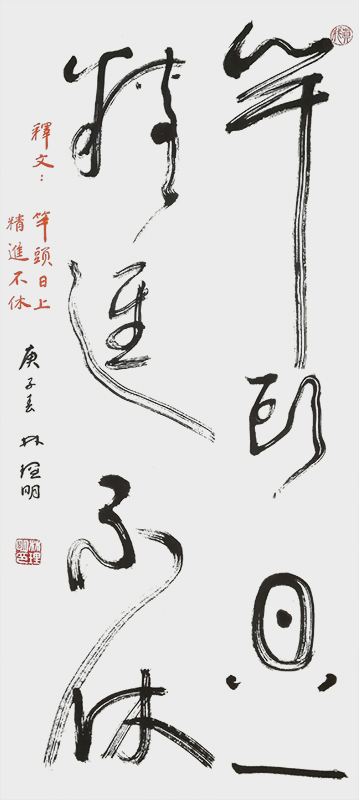 竿頭日上
精進不休
釋文：
竿頭日上
精進不休
庚子春 林理明
林理明印